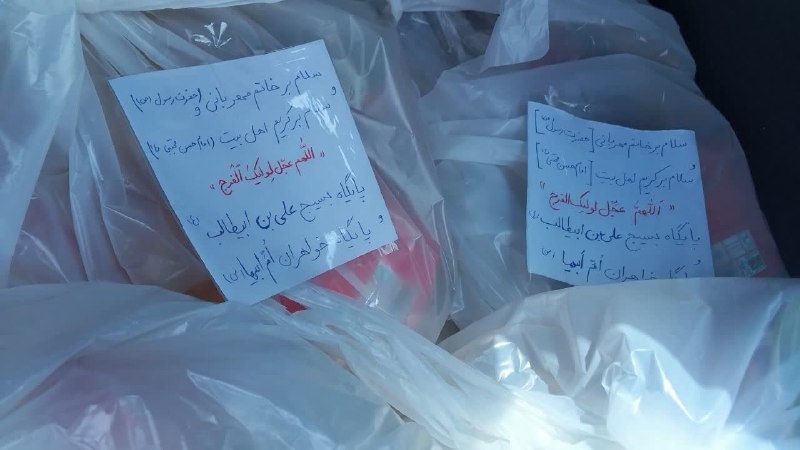 سلام بر خاتم مهربانی (حضرت رسول (ص)) و
و سلام بر کریم اهل بیت (امام حسن مجتبی (ع))
« اللّٰهُمَّ عَجِّل لِوَلیِّکَ الْفَرَج »
پایگاه بسیج علی بن ابیطالب (ع)
و پایگاه خواهران اُمّ اَبیها (س)
سلام بر خاتم مهربانی [حضرت رسول (ص)]
و سلام بر کریم اهل بیت [امام حسن مجتبی (ع)]
« اَللّٰهُمَّ عَجّل لِوَلیِکَ الفَرَج »
پایگاه بسیج علی بن ابیطالب (ع)
و پایگاه خواهران اُمّ اَبیها (س)